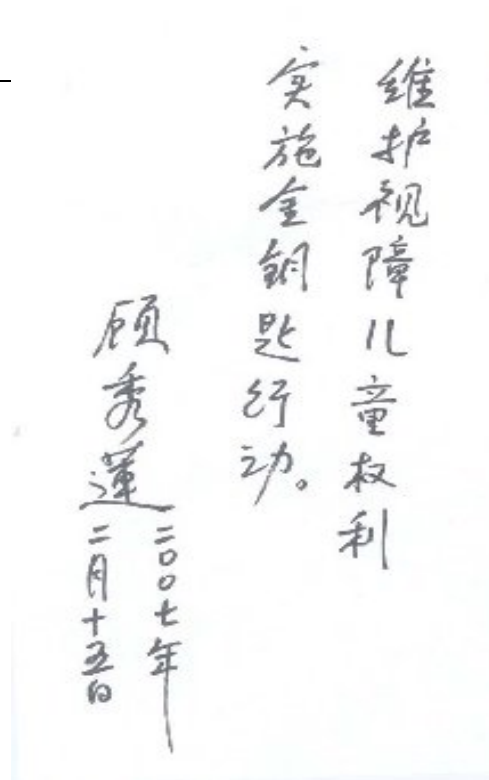 维护视障儿童权利
实施金钥匙行动。
顾秀莲
二〇〇七年
二月十五日